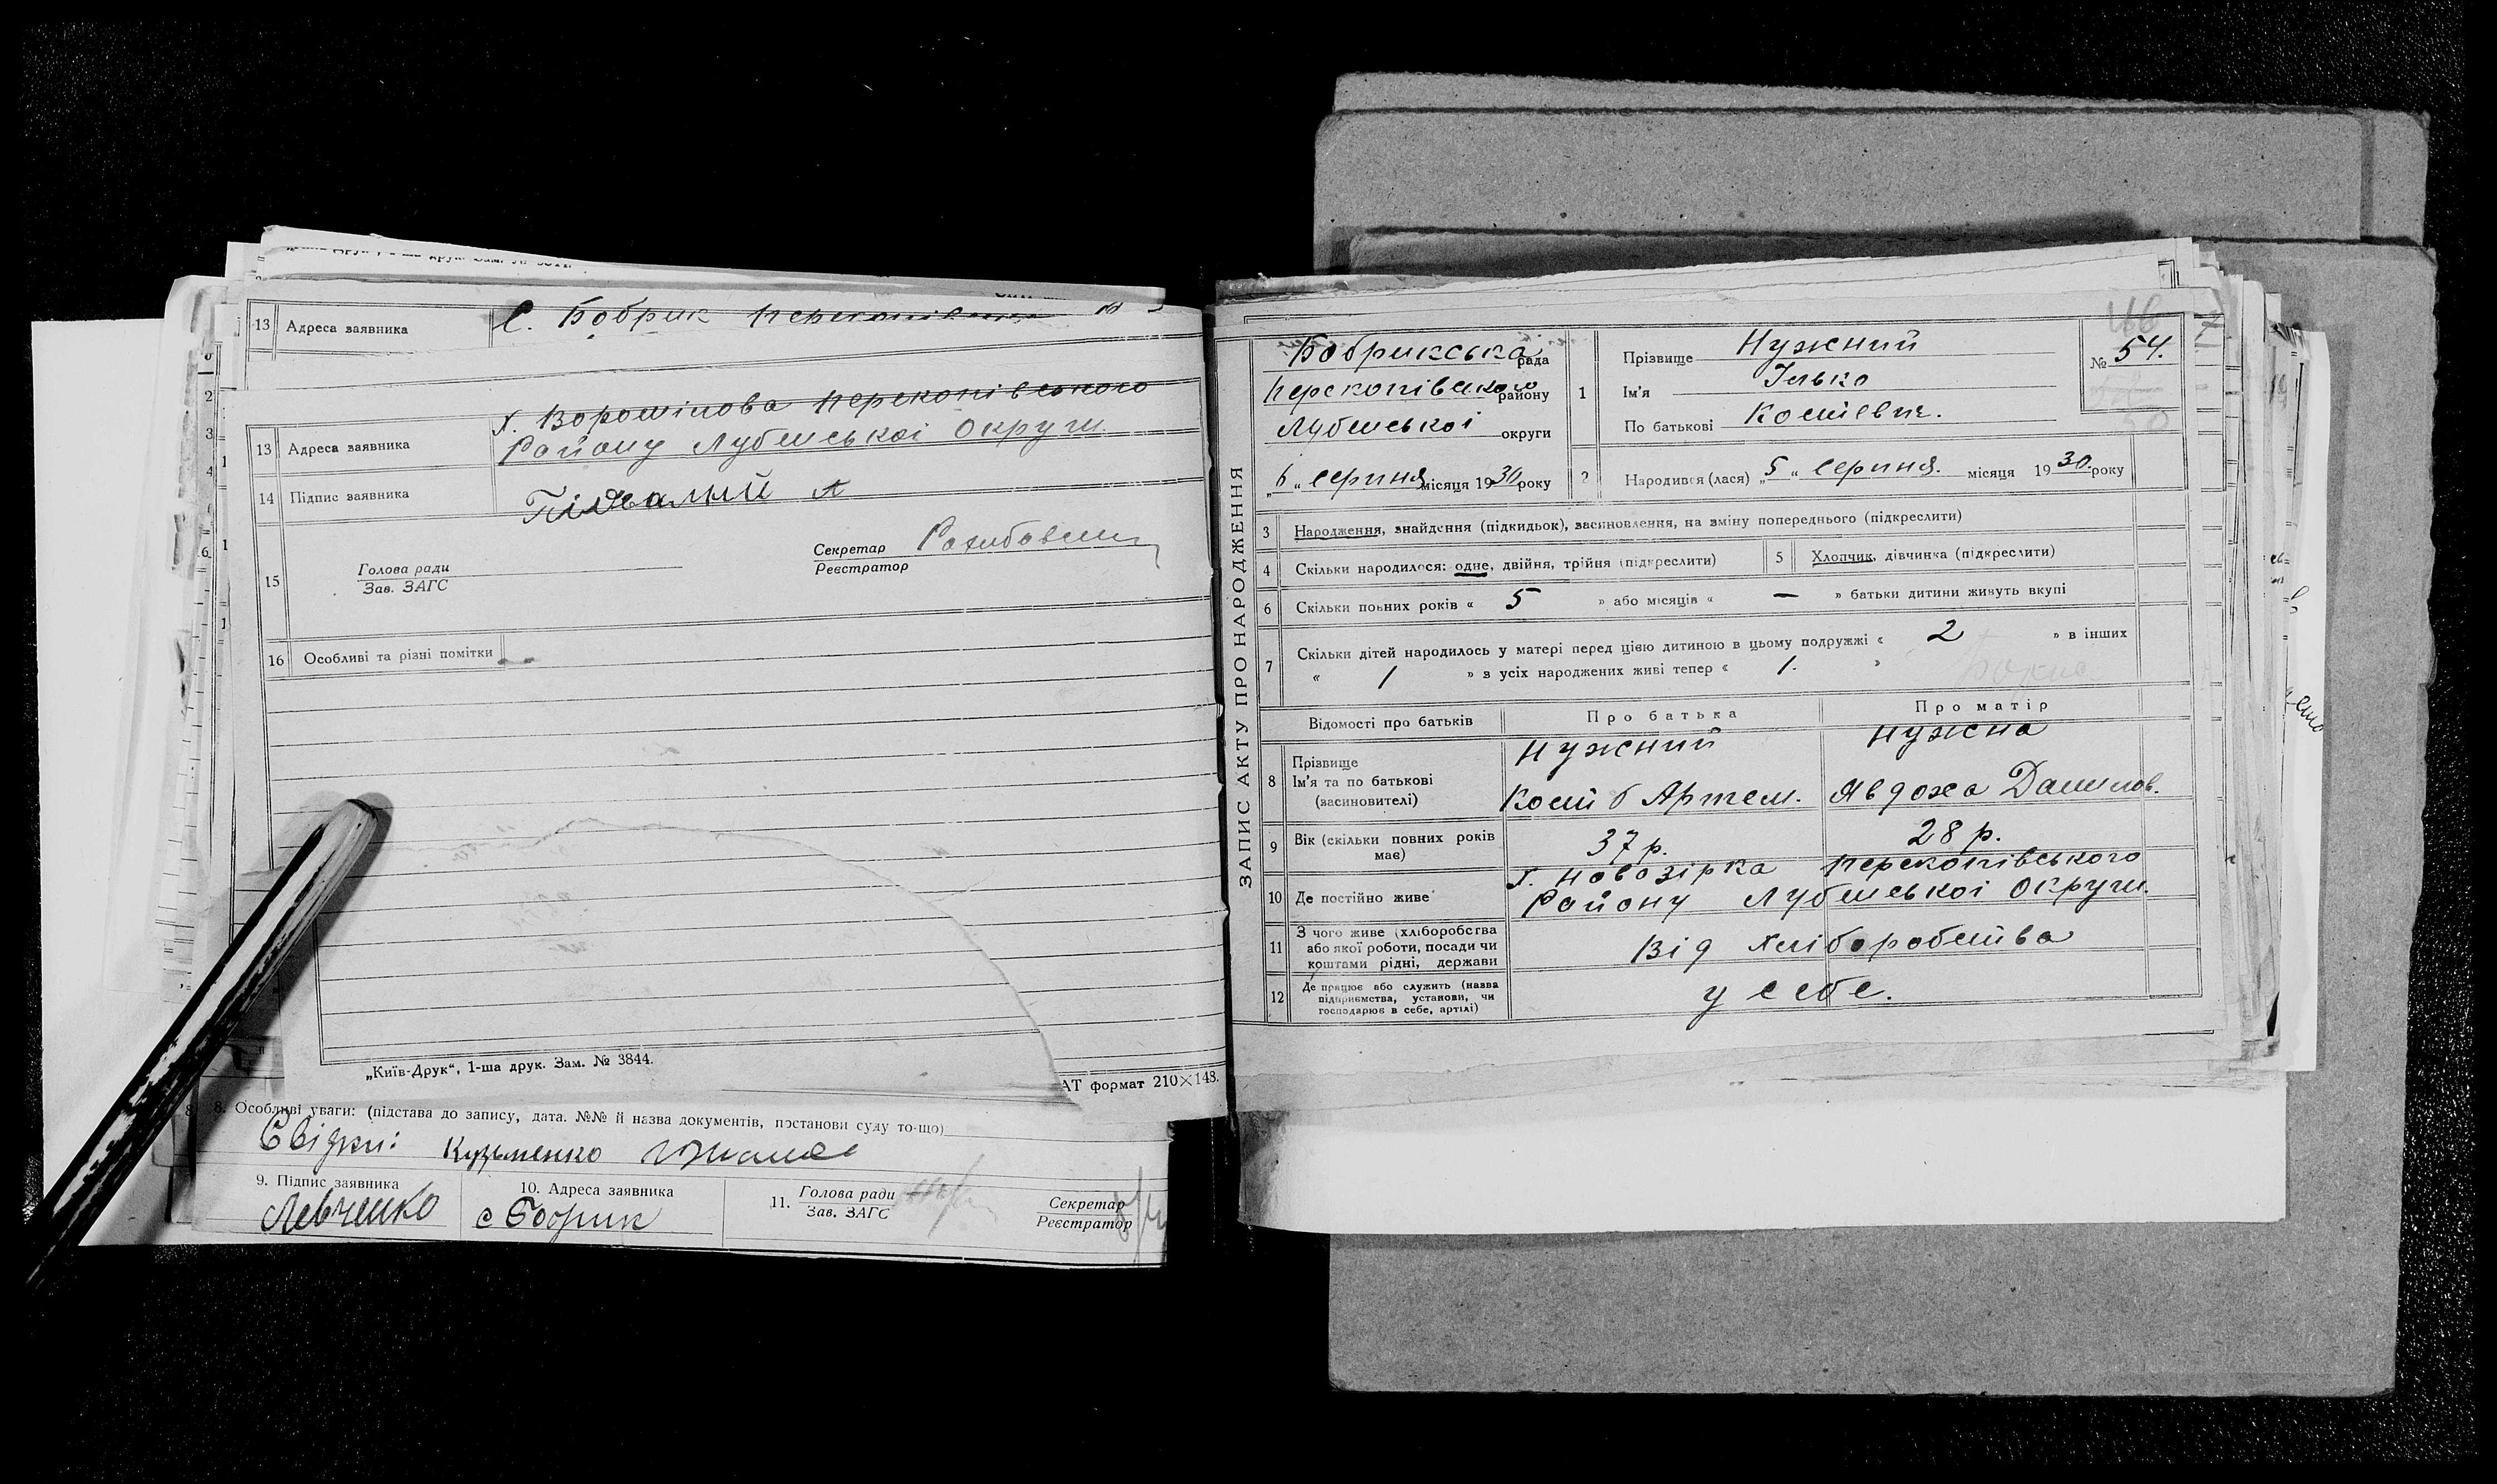 13 Адреса заявника С. Бобрик Перекопівського
13 Адреса заявника х. Ворошілова Перекопівського
Району Лубенської Округи
14 Підпис заявника Підвалний А
Секретар
Реєстратор
15 Голова ради
Зав. ЗАГС
16 Особливі та різні помітки
„Київ-Друк“, 1-ша друк. Зам. № 3844.
АТ формат 210×148.
8. Особливі уваги: (підстава до запису, дата. №№ й назва документів, постанови суду то-що)
Свідки: Кузьменко
9. Підпис заявника 10. Адреса заявника 11. Голова ради
Зав. ЗАГС
Секретар
Реєстратор
Левченко с Бобрик
ЗАПИС АКТУ ПРО НАРОДЖЕННЯ
Бобрикська рада
Перекопівського району
Лубенської округи
„6“ серпня місяця 1930 року
1 Прізвище Нужний
Ім'я Ілько
По батькові Костєвич.
№ 54.
50
2 Народився (лася) „5“ серпня. місяця 1930. року
3 Народження, знайдення (підкидьок), засиновлення, на зміну попереднього (підкреслити)
4 Скільки народилося: одне, двійня, трійня (підкреслити) 5 Хлопчик, дівчинка (підкреслити)
6 Скільки повних років « 5 » або місяців « — » батьки дитини живуть вкупі
7 Скільки дітей народилось у матері перед цією дитиною в цьому подружжі « 2 » в інших
« 1 » в усіх народжених живі тепер « 1. »
Відомості про батьків Про батька Про матір
8 Прізвище
Ім'я та по батькові
(засиновителі)
Нужний Нужна
Артем. Явдоха Данилов.
9 Вік (скільки повних років має) 37 р. 28 р.
10 Де постійно живе х. Новозірка Перекопівського
Району Лубенської Округи.
11 З чого живе (хліборобства
або якої роботи, посади чи
коштами рідні, держави
Від хліборобства
12 Де працює або служить (назва
підприємства, установи, чи
господарює в себе, артілі)
у себе.